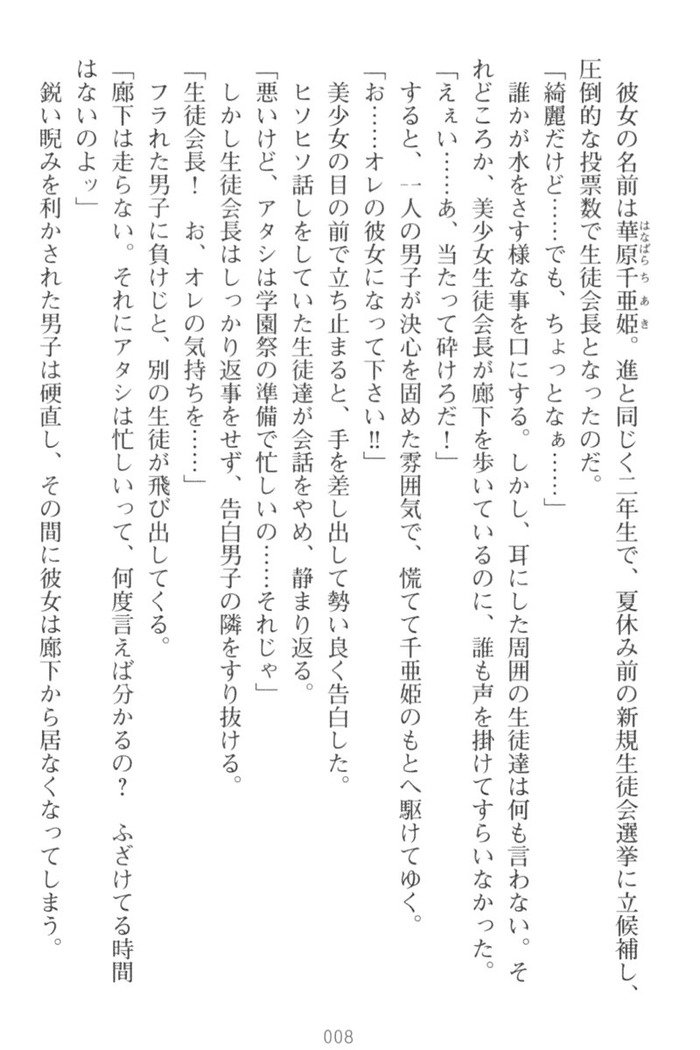 彼女の名前は華原千亜姫。進と同じく二年生で、夏休み前の新規生徒会選挙に立候補し、
はなばら ちあき
圧倒的な投票数で生徒会長となったのだ。
「綺麗だけど……でも、ちょっとなぁ……」
誰かが水をさす様な事を口にする。しかし、耳にした周囲の生徒達は何も言わない。そ
れどころか、美少女生徒会長が廊下を歩いているのに、誰も声を掛けてすらいなかった。
「えぇい……あ、当たって砕けろだ！」
すると、一人の男子が決心を固めた雰囲気で、慌てて千亜姫のもとへ駆けてゆく。
「お……オレの彼女になって下さい‼」
美少女の目の前で立ち止まると、手を差し出して勢い良く告白した。
ヒソヒソ話しをしていた生徒達が会話をやめ、静まり返る。
「悪いけど、アタシは学園祭の準備で忙しいの……それじゃ」
しかし生徒会長はしっかり返事をせず、告白男子の隣をすり抜ける。
「生徒会長！　お、オレの気持ちを……」
フラれた男子に負けじと、別の生徒が飛び出してくる。
「廊下は走らない。それにアタシは忙しいって、何度言えば分かるの？　ふざけてる時間
はないのよッ」
鋭い睨みを利かされた男子は硬直し、その間に彼女は廊下から居なくなってしまう。
008